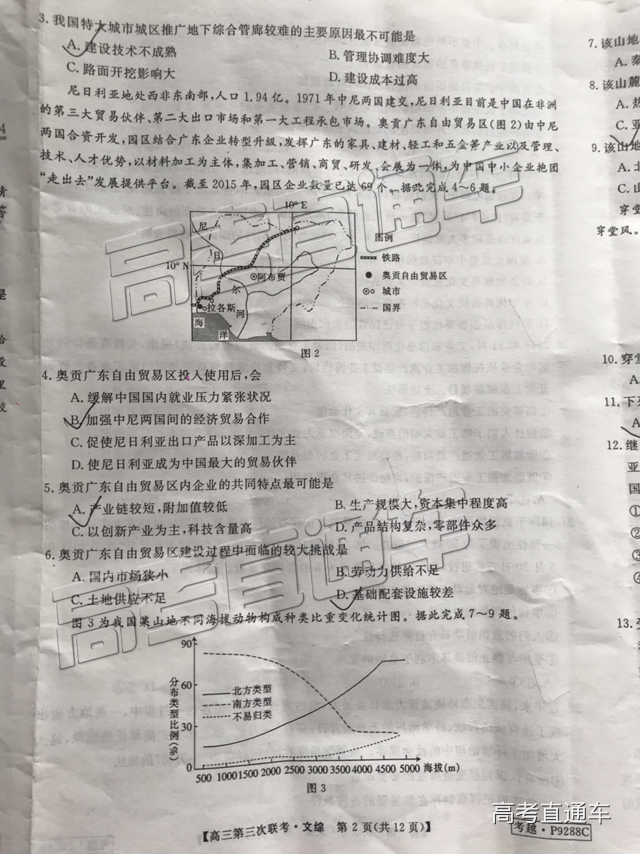 3. 我国特大城市城区推广地下综合管廊较难的主要原因最不可能是
A. 建设技术不成熟
B. 管理协调难度大
C. 路面开挖影响大
D. 建设成本过高
尼日利亚地处西非东南部,人口 1.94 亿。1971年中尼两国建交,尼日利亚目前是中国在非洲
的第三大贸易伙伴、第二大出口市场和第一大工程承包市场。奥贡广东自由贸易区(图2)由中尼
两国合资开发,园区结合广东企业转型升级,发挥广东的家具、建材、轻工和五金等产业以及管理、
技术、人才优势,以材料加工为主体,集加工、营销、商贸、研发、会展为一体,为中国中小企业抱团
“走出去”发展提供平台。截至2015年,园区企业数量已达69个。据此完成4~6题。
10°E
尼
日
10°N
阿布贾
尔
拉各斯
河
海
洋
图例
铁路
奥贡自由贸易区
城市
国界
图2
4. 奥贡广东自由贸易区投入使用后,会
A. 缓解中国国内就业压力紧张状况
B. 加强中尼两国间的经济贸易合作
C. 促使尼日利亚出口产品以深加工为主
D. 使尼日利亚成为中国最大的贸易伙伴
5. 奥贡广东自由贸易区内企业的共同特点最可能是
A. 产业链较短,附加值较低
B. 生产规模大,资本集中程度高
C. 以创新产业为主,科技含量高
D. 产品结构复杂,零部件众多
6. 奥贡广东自由贸易区建设过程中面临的较大挑战是
A. 国内市场狭小
B. 劳动力供给不足
C. 土地供应不足
D. 基础配套设施较差
图3为我国某山地不同海拔动物构成种类比重变化统计图。据此完成7~9题。
分布类型比例(%)
90
60
30
0
北方类型
南方类型
不易归类
500 1000 1500 2000 2500 3000 3500 4000 4500 5000 海拔(m)
图3
【高三第三次联考·文综 第2页(共12页)】
考越·P9288C
7. 该山地
A. 秦
C.
8. 该山麓
A. 热
C. 亚
9. 该山地
A. 北
C.
穿堂风。
10. 穿堂
A.
11. 下列
A.
12. 继
亚
国
①
②
③
④
A.
13.
高考直通车
高考直通车
高考直通车